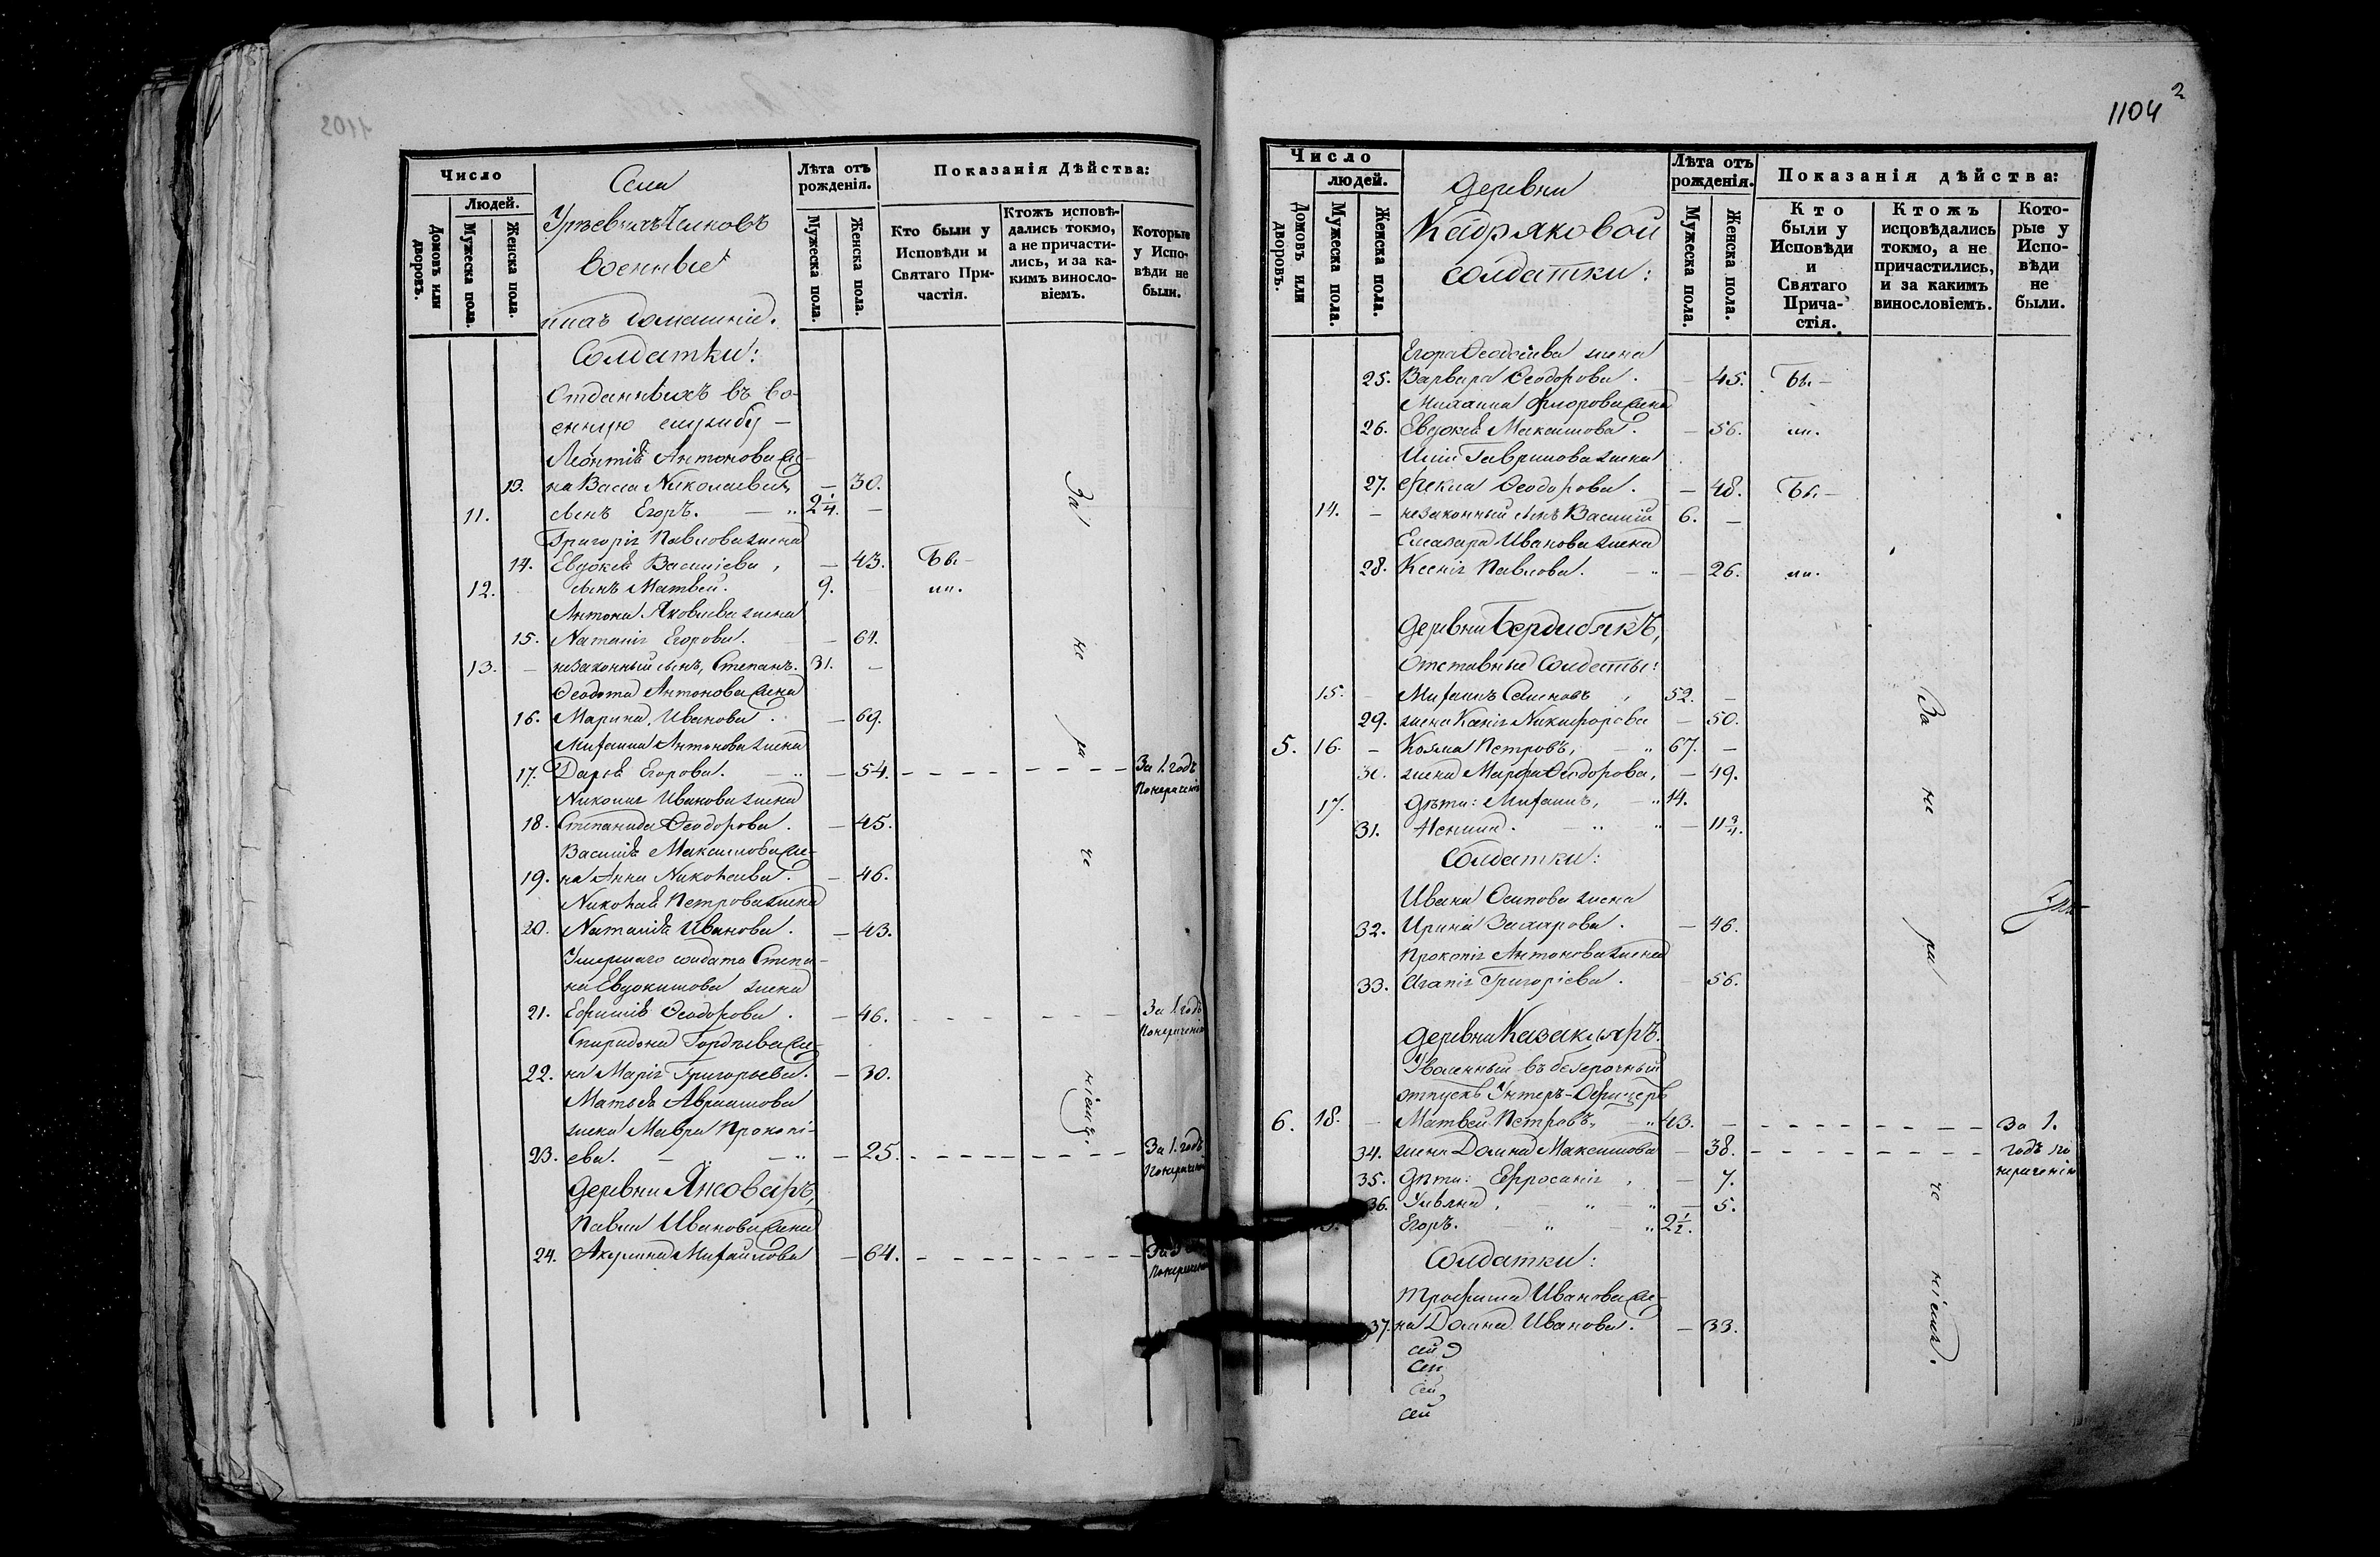 Число
Людей.
Домовъ или дворовъ.
Мужеска пола.
Женска пола.
Села
военные
Лѣта отъ рожденія.
Мужеска пола.
Женска пола.
Показанія Дѣйства:
Кто были у Исповѣди и Святаго Причастія.
Ктожъ исповѣдались токмо, а не причастились, и за какимъ винословіемъ.
Которые у Исповѣди не были.
Солдатки:
Отданныхъ въ во-
енную службу —
Леонтія Антонова же-
13. на Васса Николаева, — 30.
11. сынъ Егоръ. — 2 1/4. —
Григорія Павлова жена
14. Евдокія Василіева, — 43. Бы-
12. сынъ Матвей. 9. — ли.
Антона Яковлева жена
15. Наталія Егорова. — 64.
13. — незаконный сынъ, Степанъ. 31. —
Феодота Антонова жена
16. Марина Иванова. — 69.
Михаила Антонова жена
17. Дарія Егорова. — 54. За 1. годъ
По нераченію
Николая Иванова жена
18. Степанида Феодорова. — 45.
Василія Максимова же-
19. на Анна Николаева. — 46.
Николая Петрова жена
20. Наталія Иванова. — 43.
Умершаго солдата Степа-
на Евдокимова жена
21. Ефимія Феодорова. — 46. За 1. годъ
По нераченію
Спиридона Гордѣева же-
22. на Марія Григорьева. — 30.
Матвѣя Авраамова
жена Мавра Прокопі-
23. ева. — 25. За 1. годъ
По нераченію
Деревни Янсоваръ,
Павла Иванова жена
24. Акулина Михайлова — 64.
По нераченію
За
не
ра
че
ніемъ.
1104
2
Число
людей.
Домовъ или дворовъ.
Мужеска пола.
Женска пола.
Деревни
Кадряковой
солдатки:
Лѣта отъ рожденія.
Мужеска пола.
Женска пола.
Показанія дѣйства:
Кто были у Исповѣди и Святаго Причастія.
Ктожъ исповѣдались токмо, а не причастились, и за какимъ винословіемъ.
Которые у Исповѣди не были.
Егора Феодосіева жена
25. Варвара Феодорова. — 45. Бы-
Михаила Флорова жена
26. Евдокія Максимова. — 56. ли.
Иліи Гаврилова жена
27. Фекла Феодорова. — 48. Бы-
14. — незаконный сынъ Василій 6. —
Елеазара Иванова жена
28. Ксенія Павлова. — 26. ли.
Деревни Бердибякъ,
Отставные Солдаты:
15. Михаилъ Семеновъ, 52. —
29. жена Ксенія Никифорова — 50.
5. 16. — Козма Петровъ, 67. —
30. жена Марфа Феодорова, — 49.
17. Дѣти: Михаилъ, 14.
31. Ненила. — 11 3/4.
Солдатки:
Ивана Осипова жена
32. Ирина Захарова. — 46.
Прокопія Антонова жена
33. Агапія Григорієва. — 56.
Деревни Казакларъ.
Уволенный въ безсрочный
отпускъ Унтеръ-Офицеръ
6. 18. — Матвей Петровъ, 43. — За 1.
34. жена Домна Максимова — 38. годъ по
нераченію
35. Дѣти: Ефросинія, — 7.
36. Ульяна, — 5.
Егоръ. 2 1/2.
Солдатки:
Трофима Иванова же-
37. на Домна Иванова. — 33.
За
не
ра
че
ніемъ.